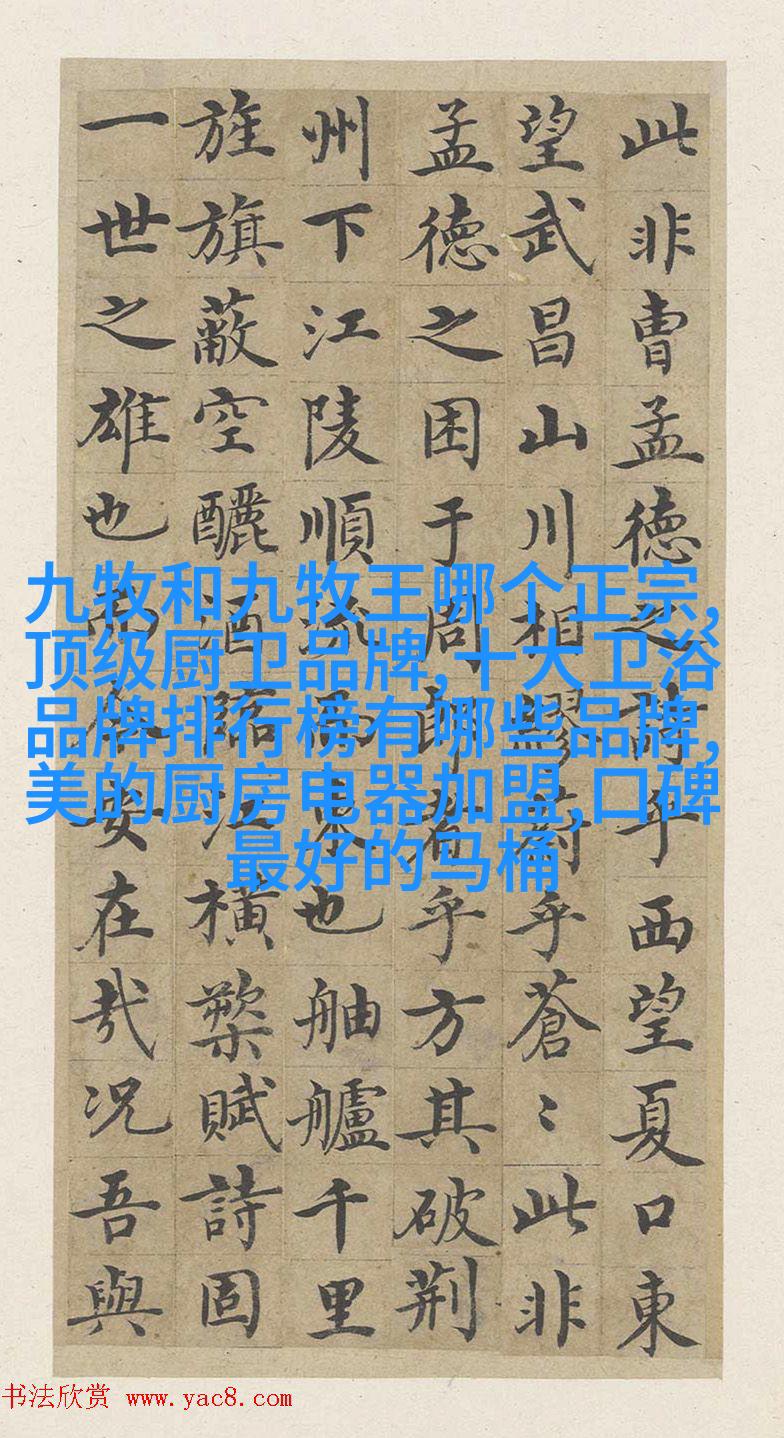 此非曹孟德之詩乎西望夏口東
望武昌山川相繆蔚乎蒼〻此非
孟德之困于周郎者乎方其破荆
州下江陵順流而東也舳艫千里
旌旗蔽空釃酒臨江橫槊賦詩固
一世之雄也而今安在哉况吾與
九牧和九牧王哪个正宗,
顶级厨卫品牌,十大卫浴
品牌排行榜有哪些品牌,
美的厨房电器加盟,口碑
最好的马桶
书法欣赏 www.yac8.com